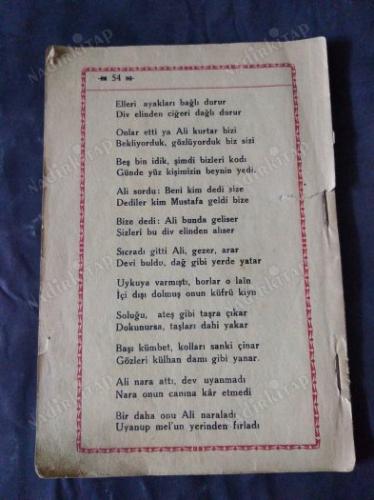 54
Elleri ayakları bağlı durur
Div elinden ciğeri dağlı durur
Onlar etti ya Ali kurtar bizi
Bekliyorduk, gözlüyorduk biz sizi
Beş bin idik, şimdi bizleri kodı
Günde yüz kişimizin beynin yedi.
Ali sordu: Beni kim dedi size
Dediler kim Mustafa geldi bize
Bize dedi: Ali bunda geliser
Sizleri bu div elinden alıser
Sıcradı gitti Ali, gezer, arar
Devi buldu, dağ gibi yerde yatar
Uykuya varmıştı, horlar o lain
İçi dışı dolmuş onun küfrü kiyn
Soluğu, ateş gibi taşra çıkar
Dokunursa, taşları dahi yakar
Başı kümbet, kolları sanki çinar
Gözleri külhan damı gibi yanar.
Ali nara attı, dev uyanmadı
Nara onun canına kâr etmedi
Bir daha onu Ali naraladı
Uyanup mel'un yerinden fırladı
NADİRKİTAP